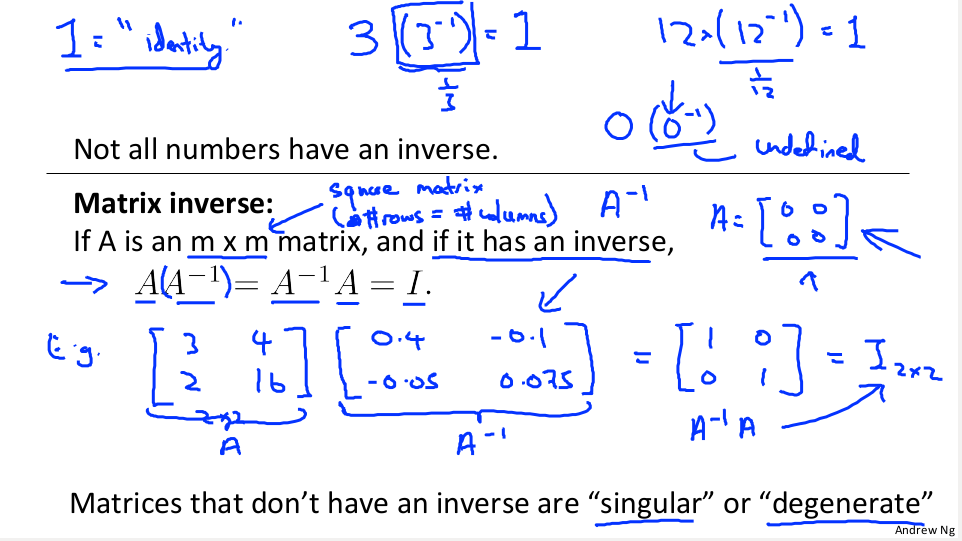 1 = "identity."    3 (3⁻¹) = 1    12 × (12⁻¹) = 1
1/3    1/12
0 (0⁻¹)
undefined
Not all numbers have an inverse.
Matrix inverse:
square matrix
(#rows = #columns)    A⁻¹
A = [0 0; 0 0]
If A is an m x m matrix, and if it has an inverse,
→ A(A⁻¹) = A⁻¹A = I.
E.g. [3 4; 2 16] [0.4 -0.1; -0.05 0.075] = [1 0; 0 1] = I 2×2
2×2
A    A⁻¹    A⁻¹A
Matrices that don't have an inverse are "singular" or "degenerate"
Andrew Ng